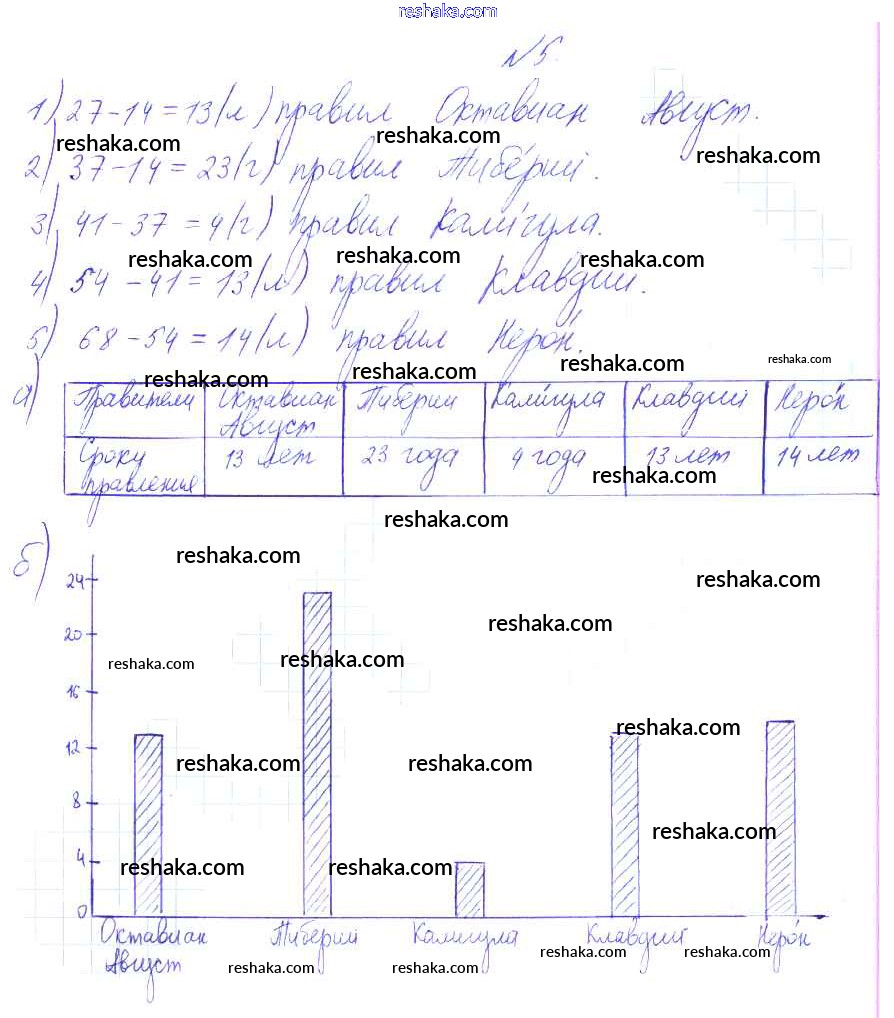 reshaka.com
№5.
1) 27-14=13(л) правил Октавиан Август.
reshaka.com reshaka.com reshaka.com
2) 37-14=23(г) правил Тибе́рий.
3) 41-37=4(г) правил Кали́гула.
reshaka.com reshaka.com reshaka.com
4) 54-41=13(л) правил Кла́вдий.
5) 68-54=14(л) правил Неро́н.
reshaka.com reshaka.com reshaka.com reshaka.com
а) Правители Октавиан Август Тиберий Кали́гула Кла́вдий Неро́н
Сроку правления 13 лет 23 года 4 года 13 лет 14 лет
reshaka.com
reshaka.com
б)
reshaka.com reshaka.com
24
reshaka.com
20
reshaka.com reshaka.com
16
reshaka.com
12
reshaka.com reshaka.com
8
reshaka.com
4
reshaka.com reshaka.com
0
Октавиан Август Тиберий Калигула Кла́вдий Неро́н
reshaka.com reshaka.com
reshaka.com reshaka.com